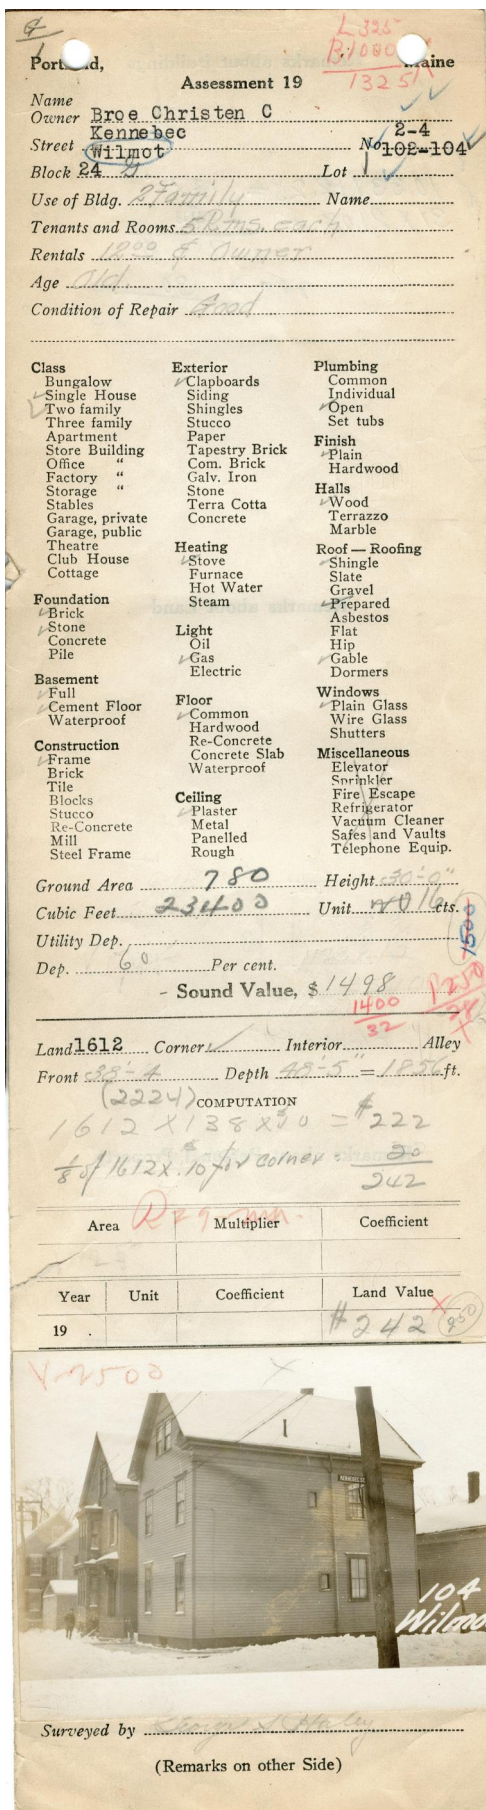 L 325
B 1000
1325
Portland, Maine
Assessment 19
Name
Owner Broe Christen C
Kennebec 2-4
Street Wilmot No 102-104
Block 24 G Lot 1
Use of Bldg. 2 Family Name
Tenants and Rooms 5 Rms. each
Rentals 12.00 & Owner
Age Old.
Condition of Repair Good
Class
Bungalow
Single House
Two family
Three family
Apartment
Store Building
Office "
Factory "
Storage "
Stables
Garage, private
Garage, public
Theatre
Club House
Cottage
Foundation
Brick
Stone
Concrete
Pile
Basement
Full
Cement Floor
Waterproof
Construction
Frame
Brick
Tile
Blocks
Stucco
Re-Concrete
Mill
Steel Frame
Exterior
Clapboards
Siding
Shingles
Stucco
Paper
Tapestry Brick
Com. Brick
Galv. Iron
Stone
Terra Cotta
Concrete
Heating
Stove
Furnace
Hot Water
Steam
Light
Oil
Gas
Electric
Floor
Common
Hardwood
Re-Concrete
Concrete Slab
Waterproof
Ceiling
Plaster
Metal
Panelled
Rough
Plumbing
Common
Individual
Open
Set tubs
Finish
Plain
Hardwood
Halls
Wood
Terrazzo
Marble
Roof — Roofing
Shingle
Slate
Gravel
Prepared
Asbestos
Flat
Hip
Gable
Dormers
Windows
Plain Glass
Wire Glass
Shutters
Miscellaneous
Elevator
Sprinkler
Fire Escape
Refrigerator
Vacuum Cleaner
Safes and Vaults
Telephone Equip.
Ground Area 780 Height 30'-0"
Cubic Feet 23400 Unit 16 cts.
1500
Utility Dep.
Dep. 60 Per cent.
Sound Value, $ 1498
1400
32
Land 1612 Corner Interior Alley
Front 38'-4 Depth 48'-5" = 1856 ft.
(2224) COMPUTATION
1612 X 138 X 10 = $222
1/8 of 1612 X .10 for corner = 20
242
Area Multiplier Coefficient
Year Unit Coefficient Land Value
19 . $242 250
V-2500
KENNEBEC ST
104
Wilmo
Surveyed by
(Remarks on other Side)